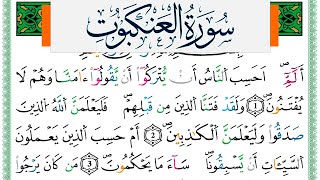 سورة العنكبوت
الٓمّٓ ۚ اَحَسِبَ النَّاسُ اَنْ يُّتْرَكُوْٓا اَنْ يَّقُوْلُوْٓا اٰمَنَّا وَهُمْ لَا
يُفْتَنُوْنَ ﴿١﴾ وَلَقَدْ فَتَنَّا الَّذِيْنَ مِنْ قَبْلِهِمْ فَلَيَعْلَمَنَّ اللّٰهُ الَّذِيْنَ
صَدَقُوْا وَلَيَعْلَمَنَّ الْكٰذِبِيْنَ ﴿٢﴾ اَمْ حَسِبَ الَّذِيْنَ يَعْمَلُوْنَ
السَّيِّئَاتِ اَنْ يَّسْبِقُوْنَا ؕ سَآءَ مَا يَحْكُمُوْنَ ﴿٣﴾ مَنْ كَانَ يَرْجُوْا